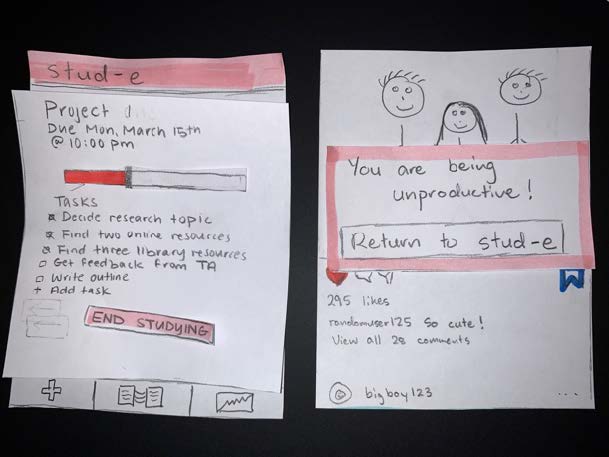 stud-e
Project 1
Due Mon, March 15th
@ 10:00 pm
TASKS
Decide research topic
Find two online resources
Find three library resources
Get feedback from TA
Write outline
+ Add task
END STUDYING
You are being
unproductive!
Return to stud-e
295 likes
randomuser125 So cute!
View all 28 comments
bigboy123
...